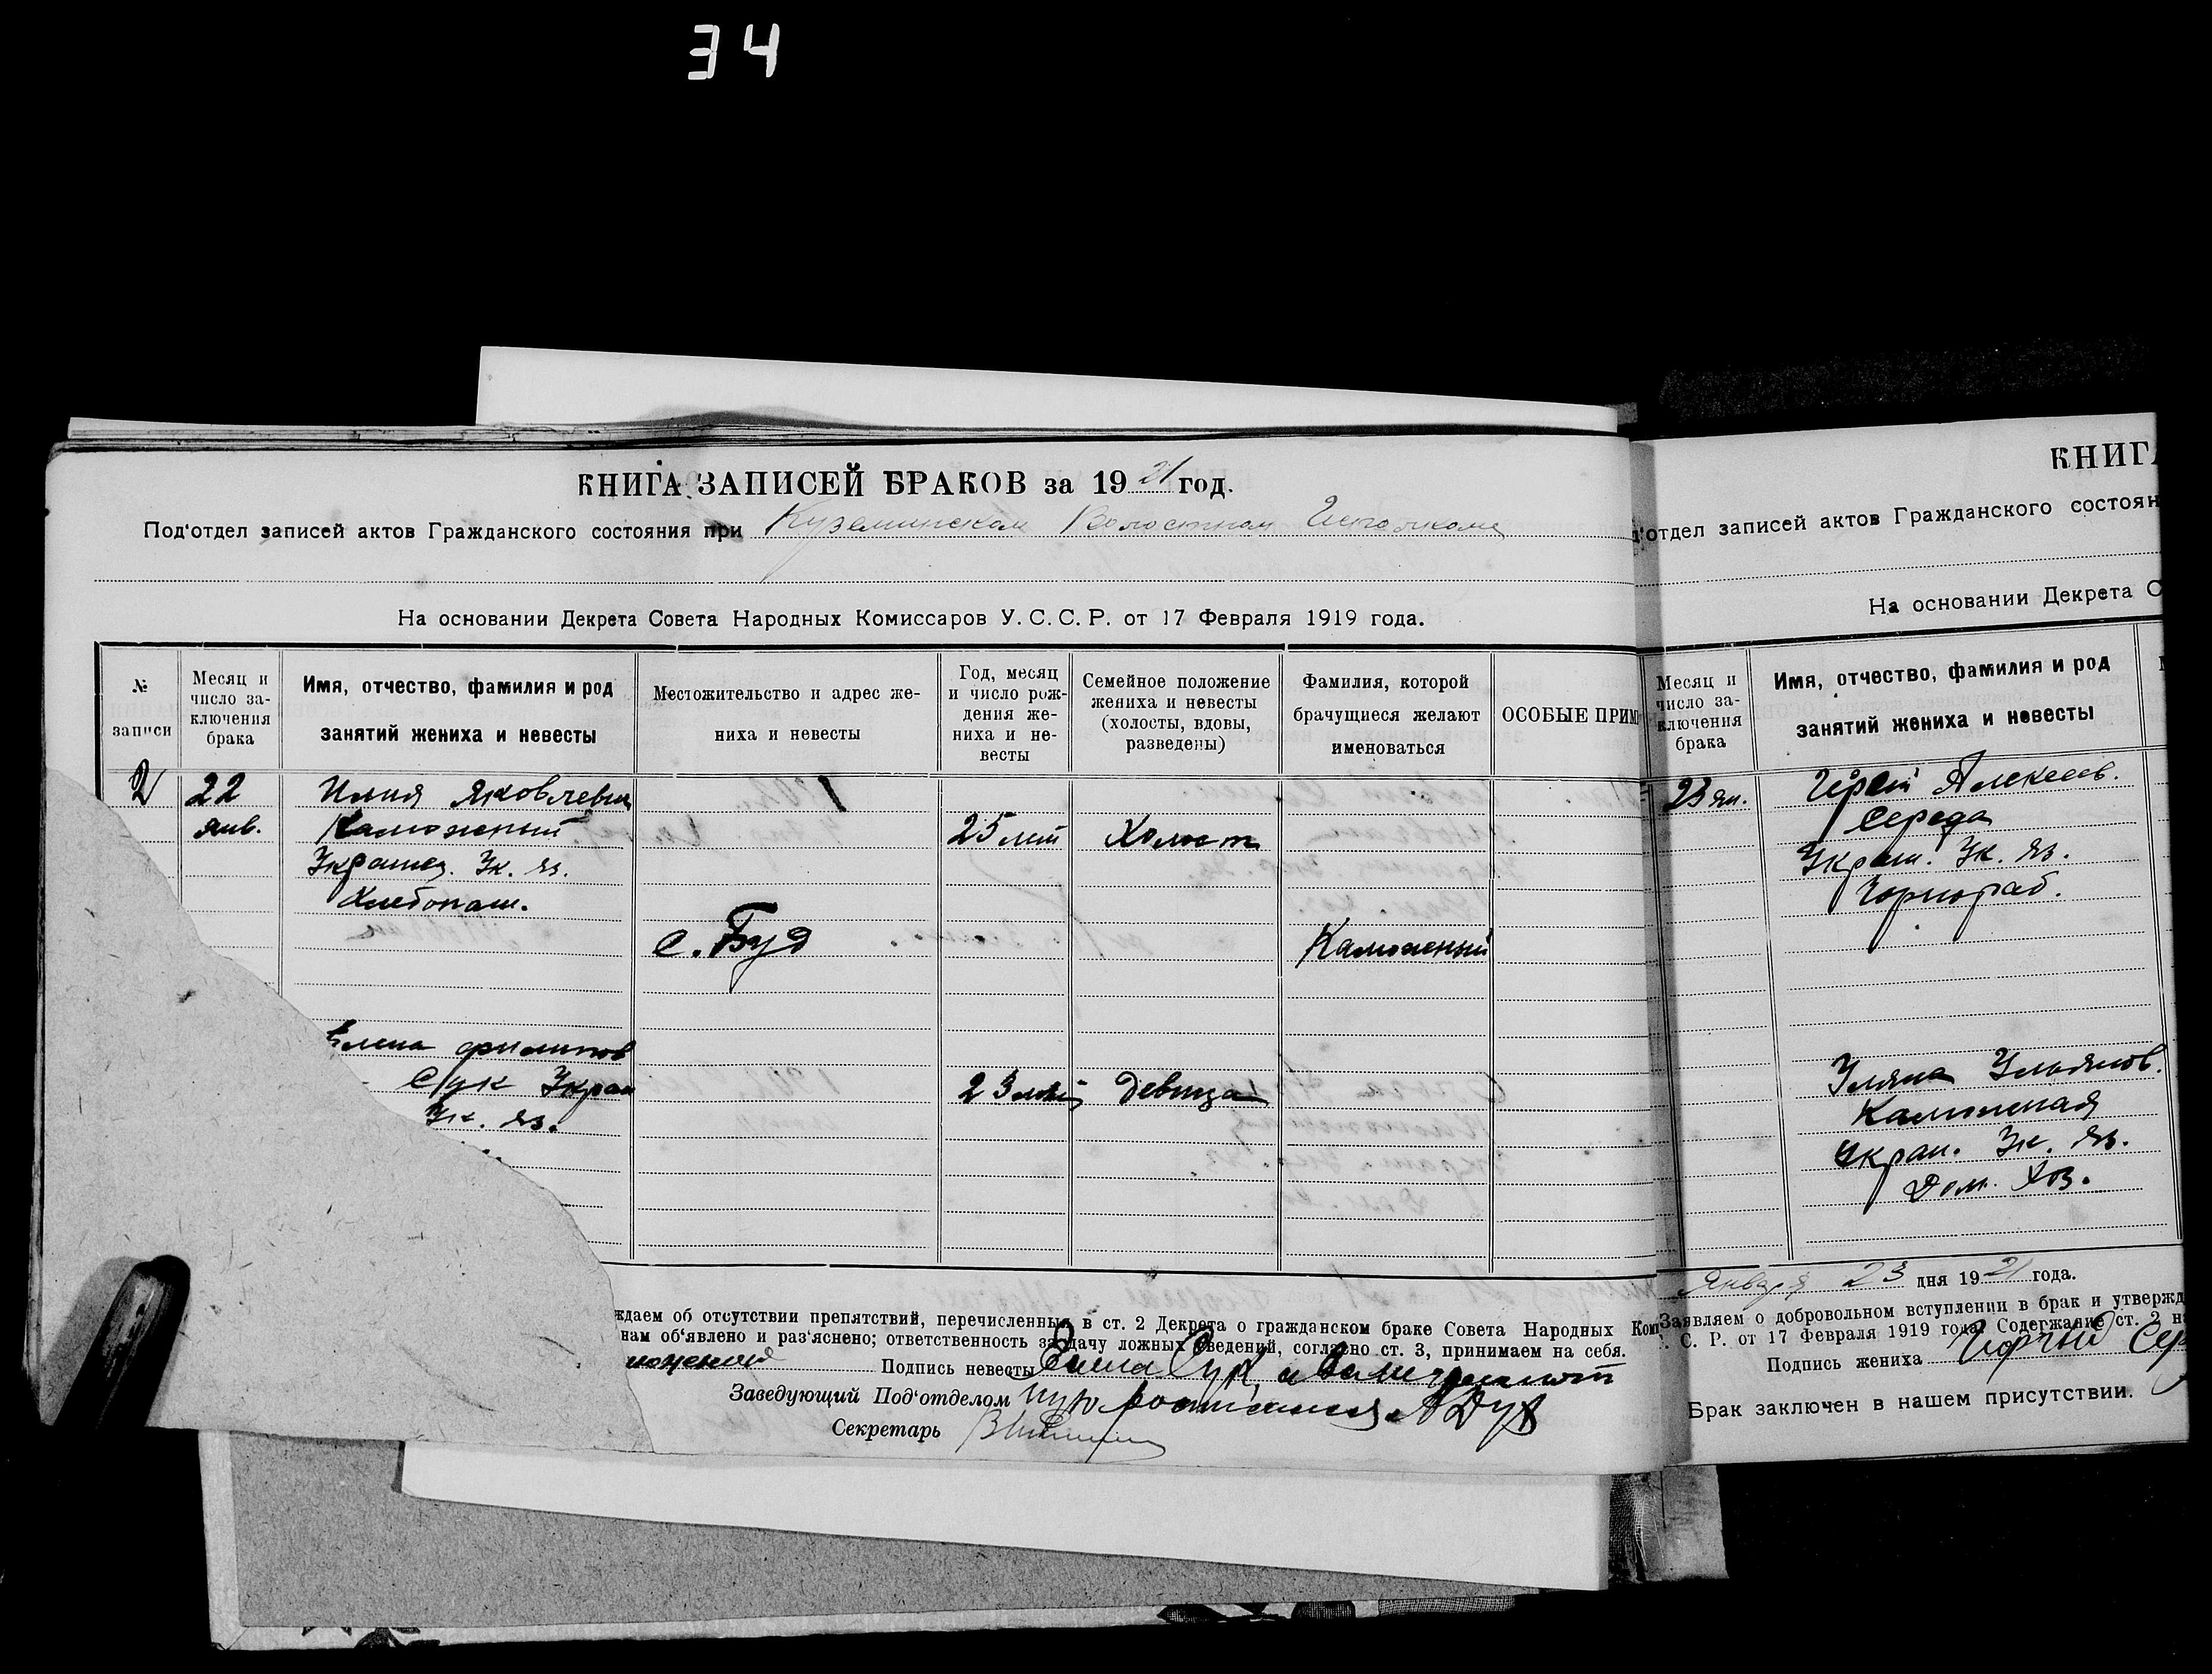 34
КНИГА ЗАПИСЕЙ БРАКОВ за 1921 год.
Под'отдел записей актов Гражданского состояния при Куземинском Волостном Исполкоме
На основании Декрета Совета Народных Комиссаров У. С. С. Р. от 17 Февраля 1919 года.
№ записи
Месяц и число заключения брака
Имя, отчество, фамилия и род занятий жениха и невесты
Местожительство и адрес жениха и невесты
Год, месяц и число рождения жениха и невесты
Семейное положение жениха и невесты (холосты, вдовы, разведены)
Фамилия, которой брачущиеся желают именоваться
ОСОБЫЕ ПРИМ
2
22
янв.
Илия Яковлевич
Калюжный
Ук. яз.
Хлебопаш.
25 лет
Холост
с. Буд
Калюжный
Елена Филипов
Сук Украи
Ук. яз.
23 лет
Девица
ждаем об отсутствии препятствий, перечисленных в ст. 2 Декрета о гражданском браке Совета Народных Ком
нам об'явлено и раз'яснено; ответственность за дачу ложных сведений, согласно ст. 3, принимаем на себя.
Подпись невесты Елена Сук, а
Заведующий Под'отделом
Секретарь
КНИГА
'отдел записей актов Гражданского состоян
На основании Декрета С
Месяц и число заключения брака
Имя, отчество, фамилия и род занятий жениха и невесты
23 ян.
Алексеев.
Середа
Украи. Ук. яз.
Чорнораб.
Уляна Ульянов.
Калюжная
Украи. Ук. яз.
Дом. Хоз.
Января 23 дня 1921 года.
Заявляем о добровольном вступлении в брак и утвержд
С. Р. от 17 Февраля 1919 года. Содержание ст. 2 н
Подпись жениха Сер
Брак заключен в нашем присутствии.